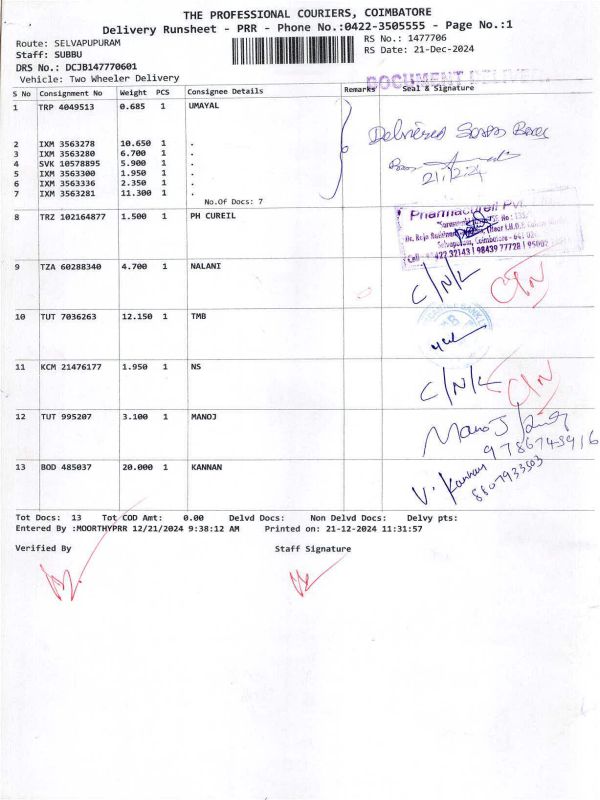 THE PROFESSIONAL COURIERS, COIMBATORE
Delivery Runsheet - PRR - Phone No.:0422-3505555 - Page No.:1
Route: SELVAPUPURAM
RS No.: 1477706
Staff: SUBBU
RS Date: 21-Dec-2024
DRS No.: DCJB147770601
Vehicle: Two Wheeler Delivery
DOCUMENT DELIVER
S No Consignment No Weight PCS Consignee Details Remarks Seal & Signature
1 TRP 4049513 0.685 1 UMAYAL
Delivered
2 IXM 3563278 10.650 1 .
3 IXM 3563280 6.700 1 .
4 SVK 10578895 5.900 1 .
5 IXM 3563300 1.950 1 .
21.12.24
6 IXM 3563336 2.350 1 .
7 IXM 3563281 11.300 1 .
No.Of Docs: 7
8 TRZ 102164877 1.500 1 PH CUREIL
Pharmacureil Pvt.
Selvapuram, Coimbatore - 641 026
Cell 422 32143 | 98439 77728 | 95002
9 TZA 60288340 4.700 1 NALANI
C/N/L C/N
10 TUT 7036263 12.150 1 TMB
11 KCM 21476177 1.950 1 NS
C/N/L C/N
12 TUT 995207 3.100 1 MANOJ
Manoj
9786743916
13 BOD 485037 20.000 1 KANNAN
V. Kannan
8807933503
Tot Docs: 13 Tot COD Amt: 0.00 Delvd Docs: Non Delvd Docs: Delvy pts:
Entered By :MOORTHYPRR 12/21/2024 9:38:12 AM Printed on: 21-12-2024 11:31:57
Verified By Staff Signature